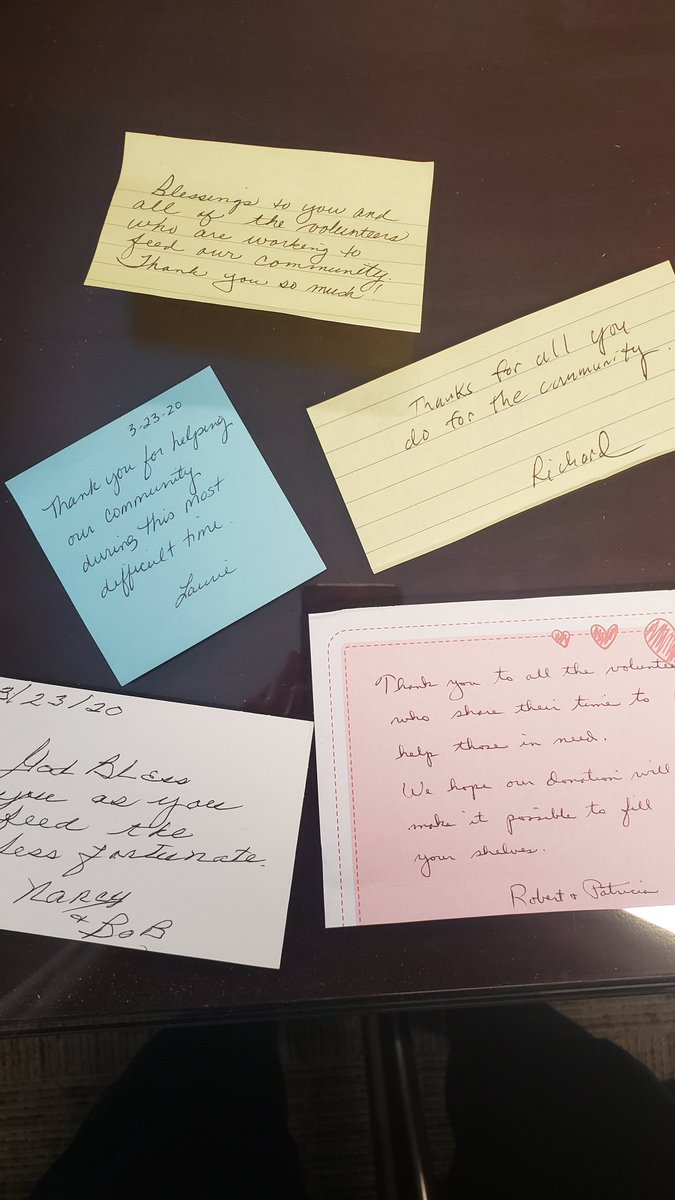 Blessings to you and
all of the volunteers
who are working to
feed our community.
Thank you so much!
Thanks for all you
do for the community.
Richard
3-23-20
Thank you for helping
our community
during this most
difficult time.
Laurie
3/23/20
God BLess
you as you
feed the
less fortunate.
Nancy
& BoB
Thank you to all the volunte
who share their time to
help those in need.
We hope our donation will
make it possible to fill
your shelves.
Robert & Patricia